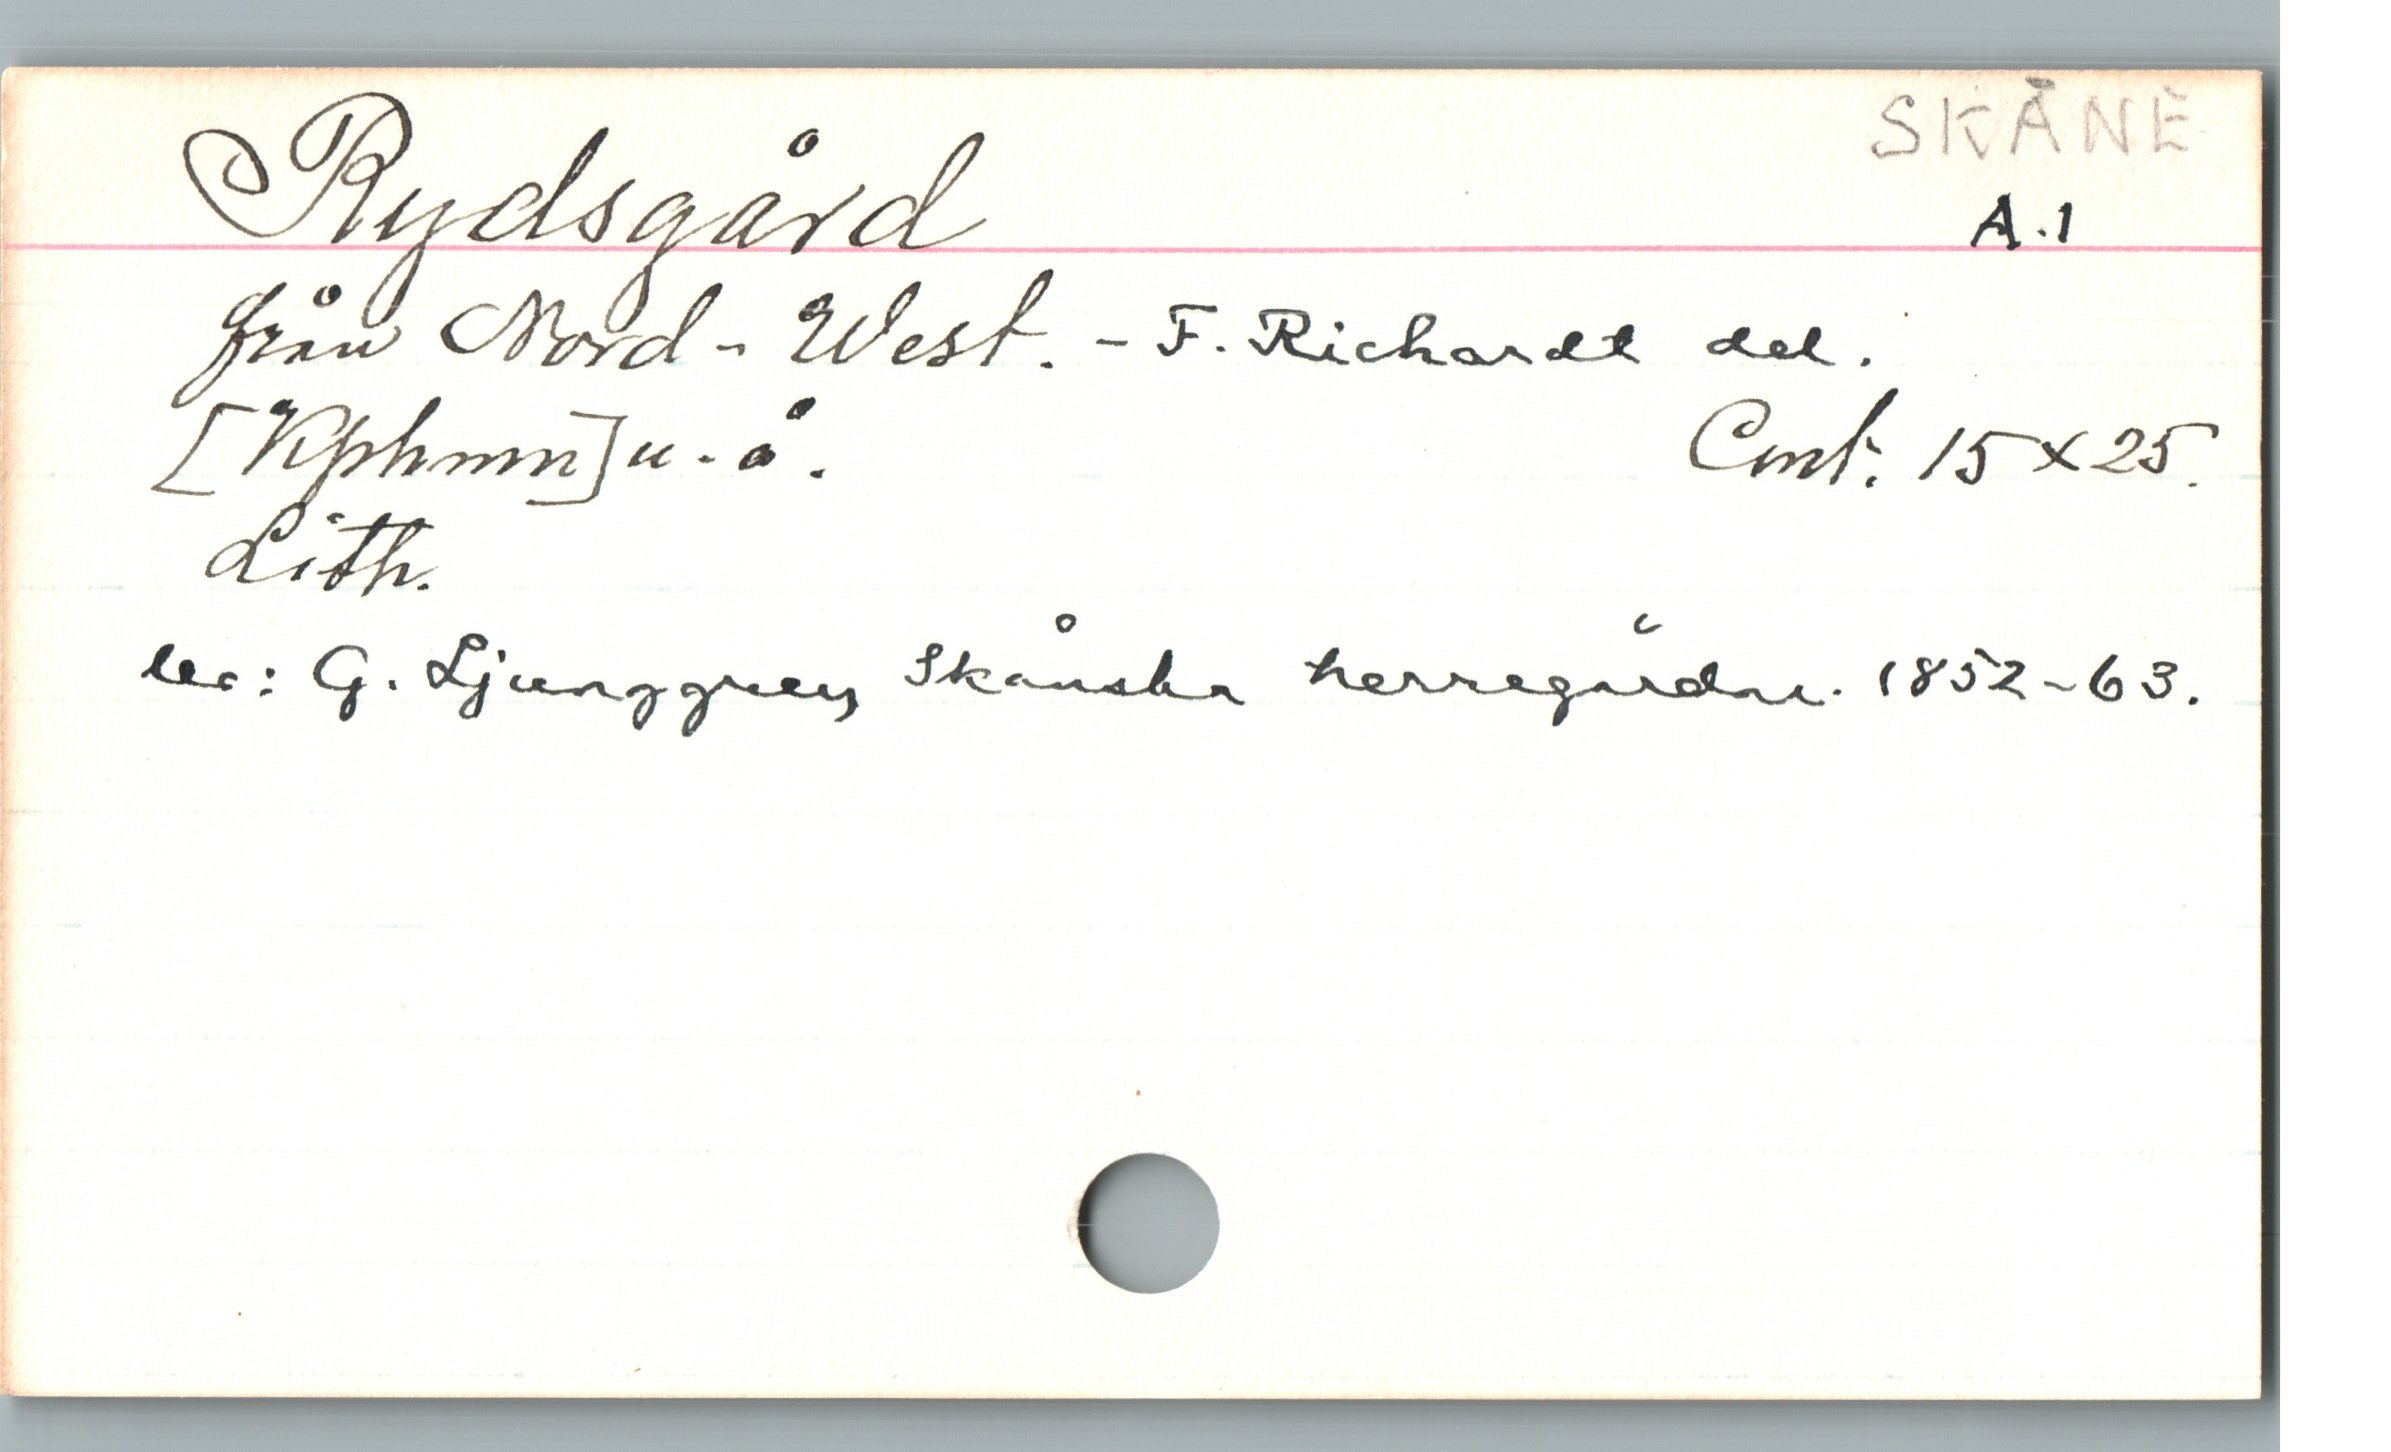 SKÅNE
Rydsgård
A.1
från Nord-West. - F. Richardt del.
[Kphmn] u. å. Cmt: 15 x 25.
Lith.
Ur: G. Ljunggren, Skånska herregårdar. 1852-63.